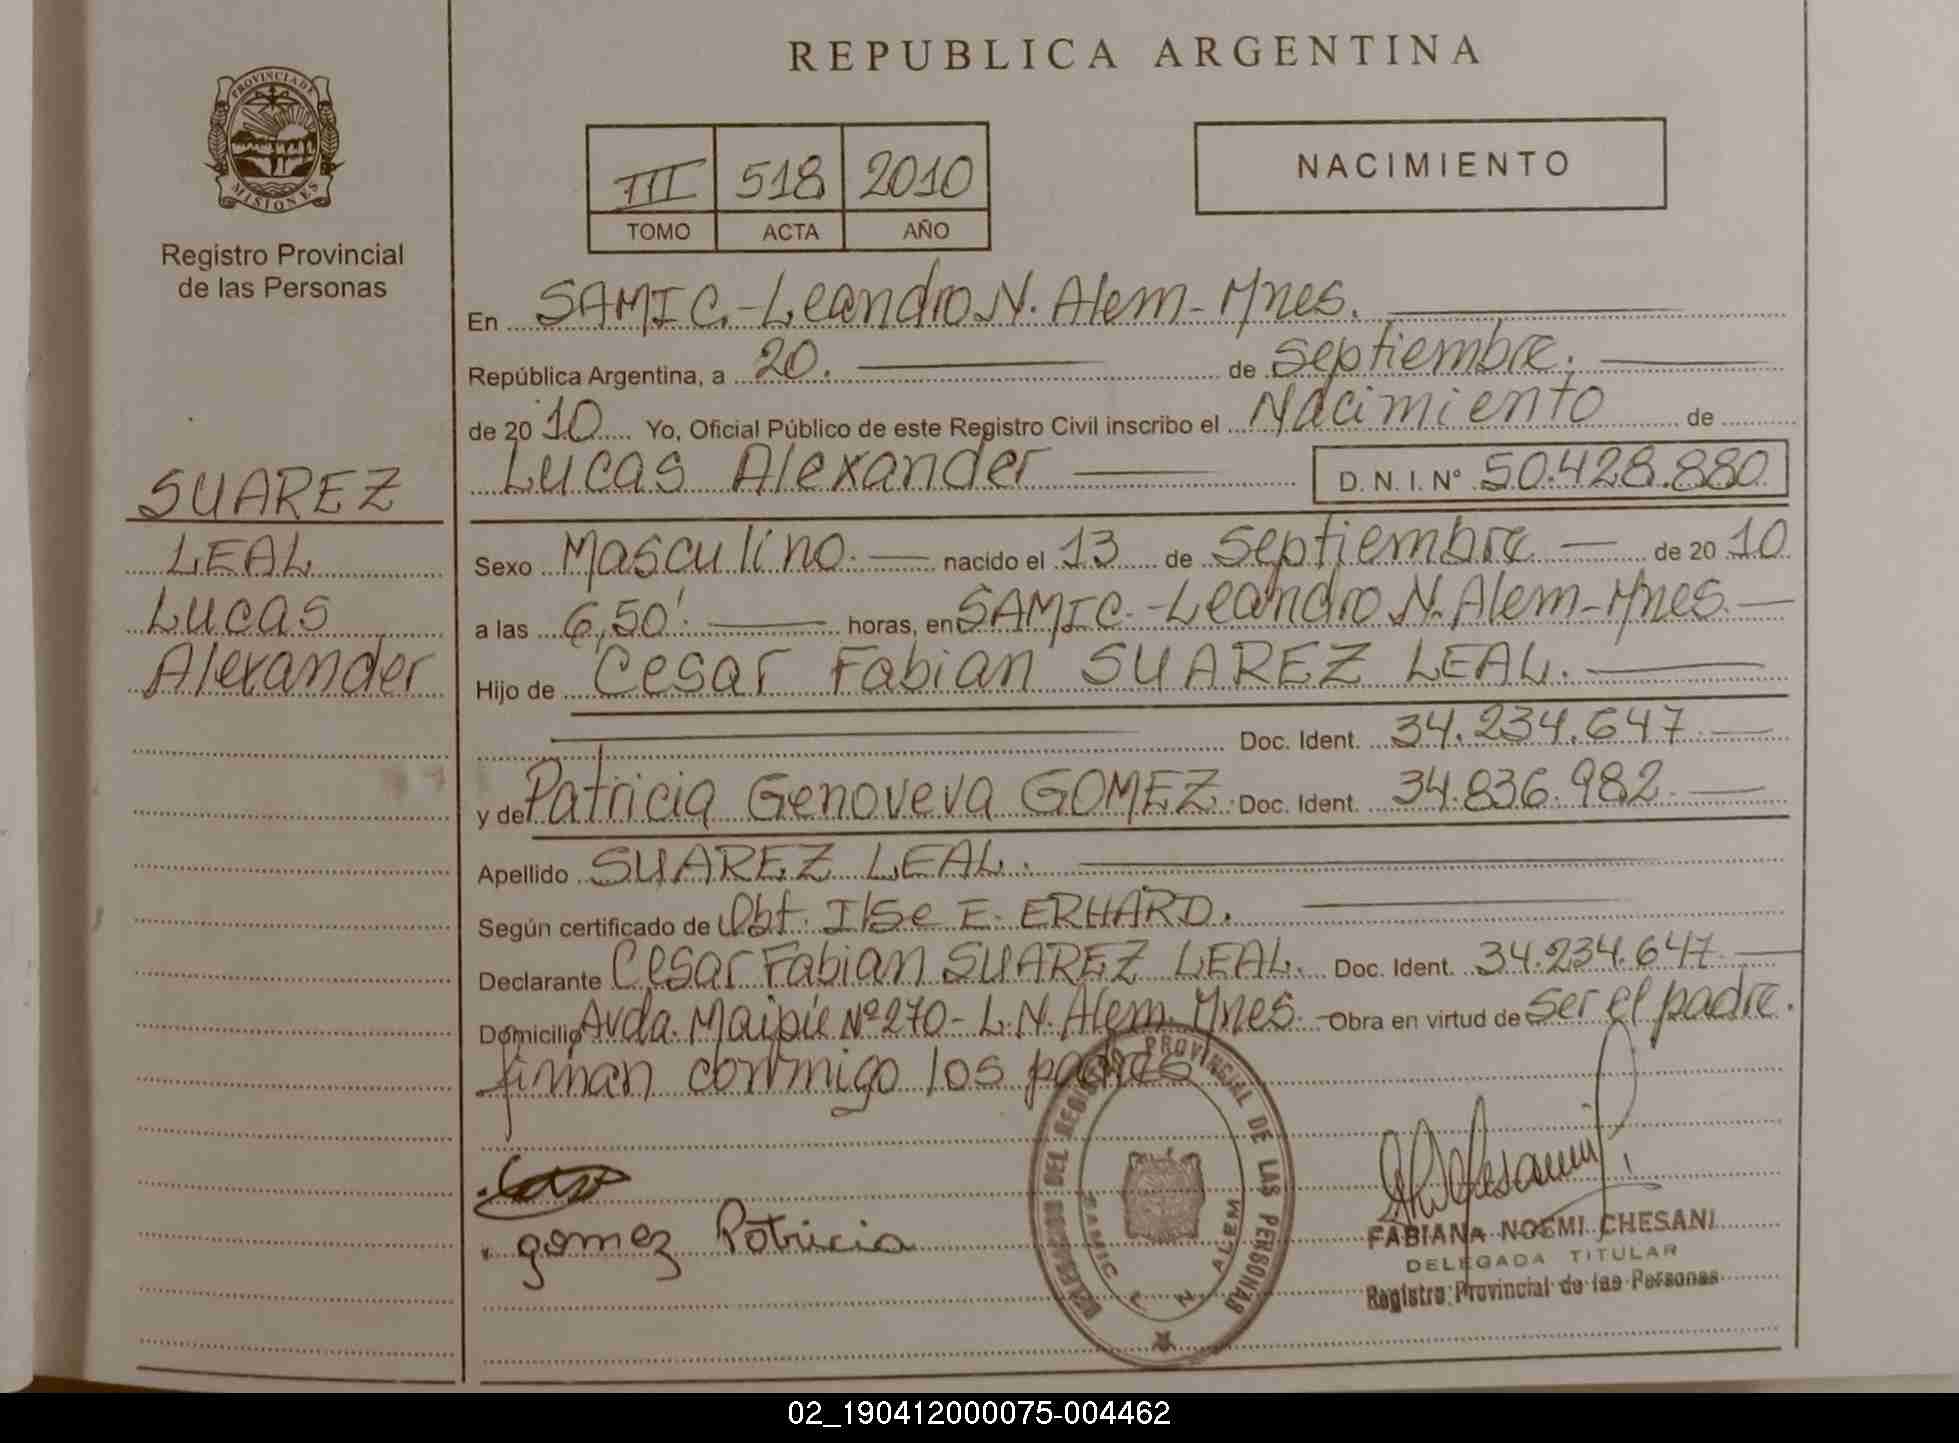 REPUBLICA ARGENTINA
PROVINCIA DE MISIONES
Registro Provincial
de las Personas
III 518 2010
TOMO ACTA AÑO
NACIMIENTO
En SAMIC.-Leandro N. Alem-Mnes.
República Argentina, a 20. de Septiembre.
de 2010 Yo, Oficial Público de este Registro Civil inscribo el Nacimiento de
Lucas Alexander D.N.I. Nº 50.428.880
SUAREZ
LEAL
Lucas
Alexander
Sexo Masculino. nacido el 13 de Septiembre de 2010
a las 6,50'. horas, en SAMIC.-Leandro N. Alem-Mnes.
Hijo de Cesar Fabian SUAREZ LEAL.
Doc. Ident. 34.234.647
y de Patricia Genoveva GOMEZ. Doc. Ident. 34.836.982
Apellido SUAREZ LEAL.
Según certificado de Obt. Ilse E. ERHARD.
Declarante Cesar Fabian SUAREZ LEAL. Doc. Ident. 34.234.647
Domicilio Avda. Maipú Nº 270-L.N. Alem. Mnes. Obra en virtud de ser el padre.
firman conmigo los padres
gomez Patricia
DEL REGISTRO PROVINCIAL DE LAS PERSONAS
SAMIC L. N. ALEM
FABIANA NOEMI CHESANI
DELEGADA TITULAR
Registro Provincial de las Personas
02_190412000075-004462